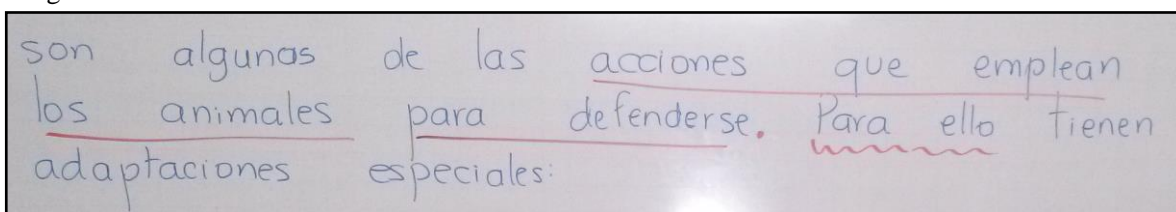 son algunas de las acciones que emplean
los animales para defenderse. Para ello tienen
adaptaciones especiales: